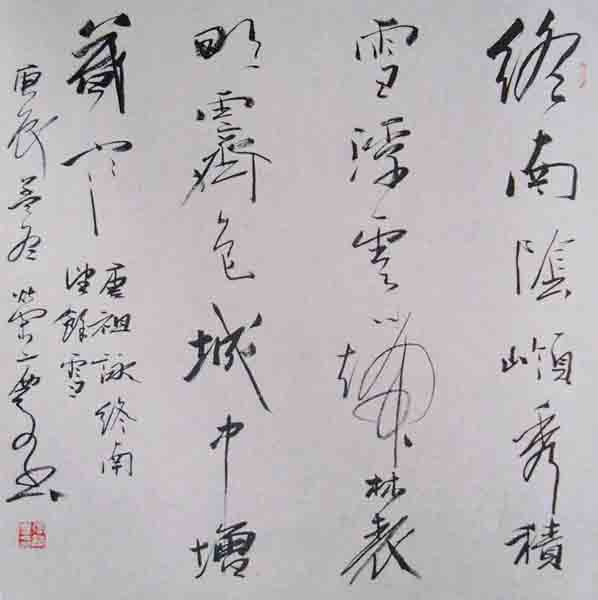 終南陰嶺秀積
雪浮雲端林表
明霽色城中增
暮寒
唐祖詠終南
望餘雪
庚辰孟冬